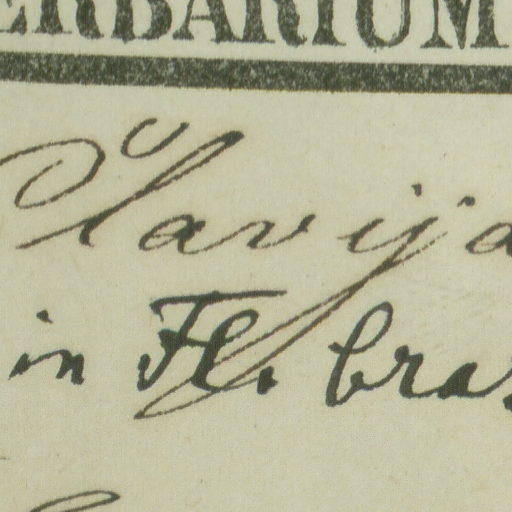 ERBARIUM
Clavija
in Fl. bras